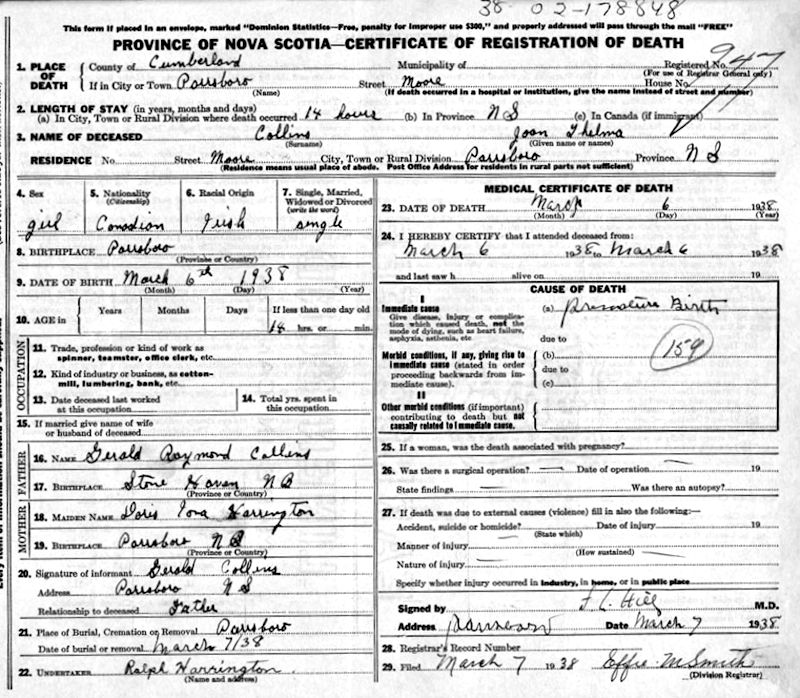 38 02-178848
This form if placed in an envelope, marked "Dominion Statistics—Free, penalty for improper use $300," and properly addressed will pass through the mail "FREE"
PROVINCE OF NOVA SCOTIA—CERTIFICATE OF REGISTRATION OF DEATH
1. PLACE OF DEATH County of Cumberland Municipality of Registered No. 947
(For use of Registrar General only)
If in City or Town Parrsboro Street Moore House No.
(Name) (If death occurred in a hospital or institution, give the name instead of street and number)
2. LENGTH OF STAY (in years, months and days)
(a) In City, Town or Rural Division where death occurred 14 hours (b) In Province N S (c) In Canada (if immigrant)
3. NAME OF DECEASED Collins Joan Thelma
(Surname) (Given name or names)
RESIDENCE No. Street Moore City, Town or Rural Division Parrsboro Province N S
(Residence means usual place of abode. Post Office Address for residents in rural parts not sufficient)
4. Sex 5. Nationality (Citizenship) 6. Racial Origin 7. Single, Married, Widowed or Divorced (write the word)
girl Canadian Irish single
8. BIRTHPLACE Parrsboro
(Province or Country)
9. DATE OF BIRTH March 6th 1938
(Month) (Day) (Year)
10. AGE in Years Months Days If less than one day old
14 hrs. or min.
OCCUPATION
11. Trade, profession or kind of work as spinner, teamster, office clerk, etc.
12. Kind of industry or business, as cotton-mill, lumbering, bank, etc.
13. Date deceased last worked at this occupation
14. Total yrs. spent in this occupation
15. If married give name of wife or husband of deceased
FATHER
16. NAME Gerald Raymond Collins
17. BIRTHPLACE Stone Haven N B
(Province or Country)
MOTHER
18. MAIDEN NAME Doris Iona Harrington
19. BIRTHPLACE Parrsboro N S
(Province or Country)
20. Signature of informant Gerald Collins
Address Parrsboro N S
Relationship to deceased Father
21. Place of Burial, Cremation or Removal Parrsboro
Date of burial or removal March 7/38
22. UNDERTAKER Ralph Harrington
(Name and address)
MEDICAL CERTIFICATE OF DEATH
23. DATE OF DEATH March 6 1938
(Month) (Day) (Year)
24. I HEREBY CERTIFY that I attended deceased from:
March 6 1938 to March 6 1938
and last saw h alive on 19
CAUSE OF DEATH
I
Immediate cause (a) Premature Birth
Give disease, injury or complication which caused death, not the mode of dying, such as heart failure, asphyxia, asthenia, etc.
due to
159
Morbid conditions, if any, giving rise to immediate cause (stated in order proceeding backwards from immediate cause).
(b)
due to
(c)
II
Other morbid conditions (if important) contributing to death but not causally related to immediate cause.
25. If a woman, was the death associated with pregnancy?
26. Was there a surgical operation? — Date of operation — 19
State findings — Was there an autopsy?
27. If death was due to external causes (violence) fill in also the following:—
Accident, suicide or homicide? Date of injury 19
(State which)
Manner of injury
(How sustained)
Nature of injury
Specify whether injury occurred in industry, in home, or in public place
Signed by F L Hill M.D.
Address Parrsboro Date March 7 1938
28. Registrar's Record Number
29. Filed March 7 1938 Effie M Smith
(Division Registrar)